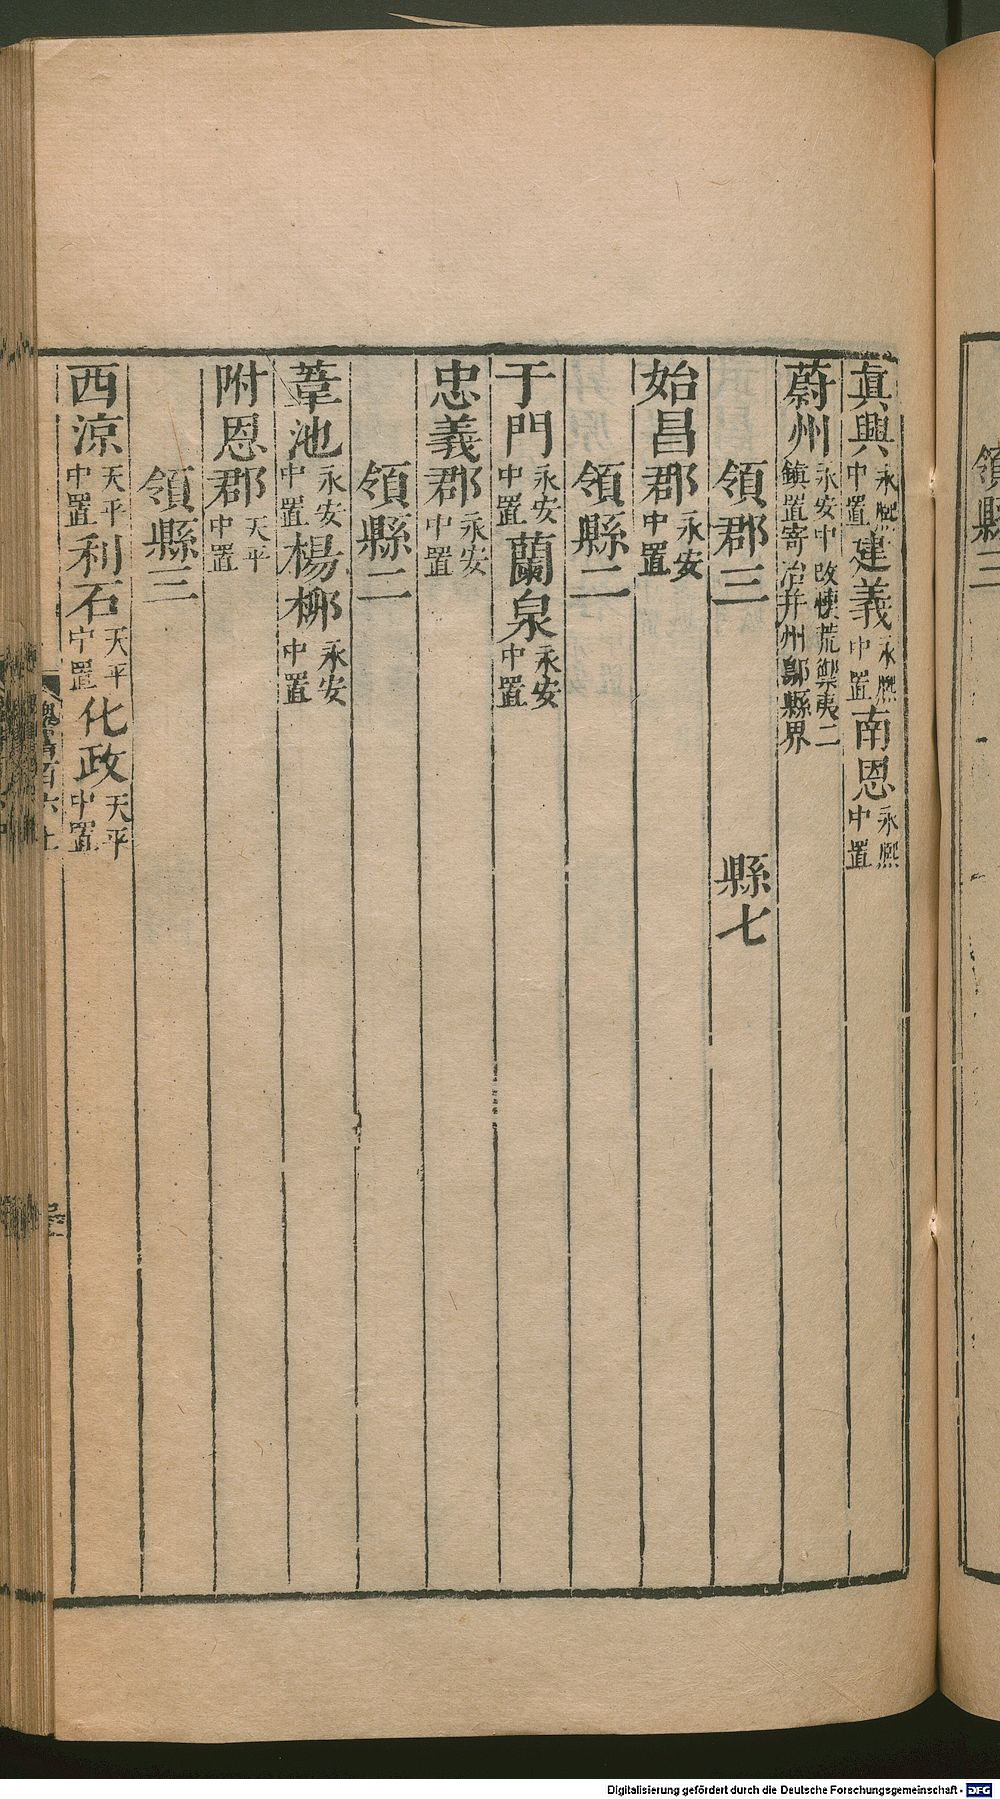 眞興永熙中置建義永熙中置南恩永熙中置
蔚州永安中改懷荒禦夷二鎮置寄治幷州鄔縣界
領郡三 縣七
始昌郡永安中置
領縣二
于門永安中置蘭泉永安中置
忠義郡永安中置
領縣二
葦池永安中置楊柳永安中置
附恩郡天平中置
領縣三
西涼天平中置利石天平中置化政天平中置
領縣三
Digitalisierung gefördert durch die Deutsche Forschungsgemeinschaft - DFG